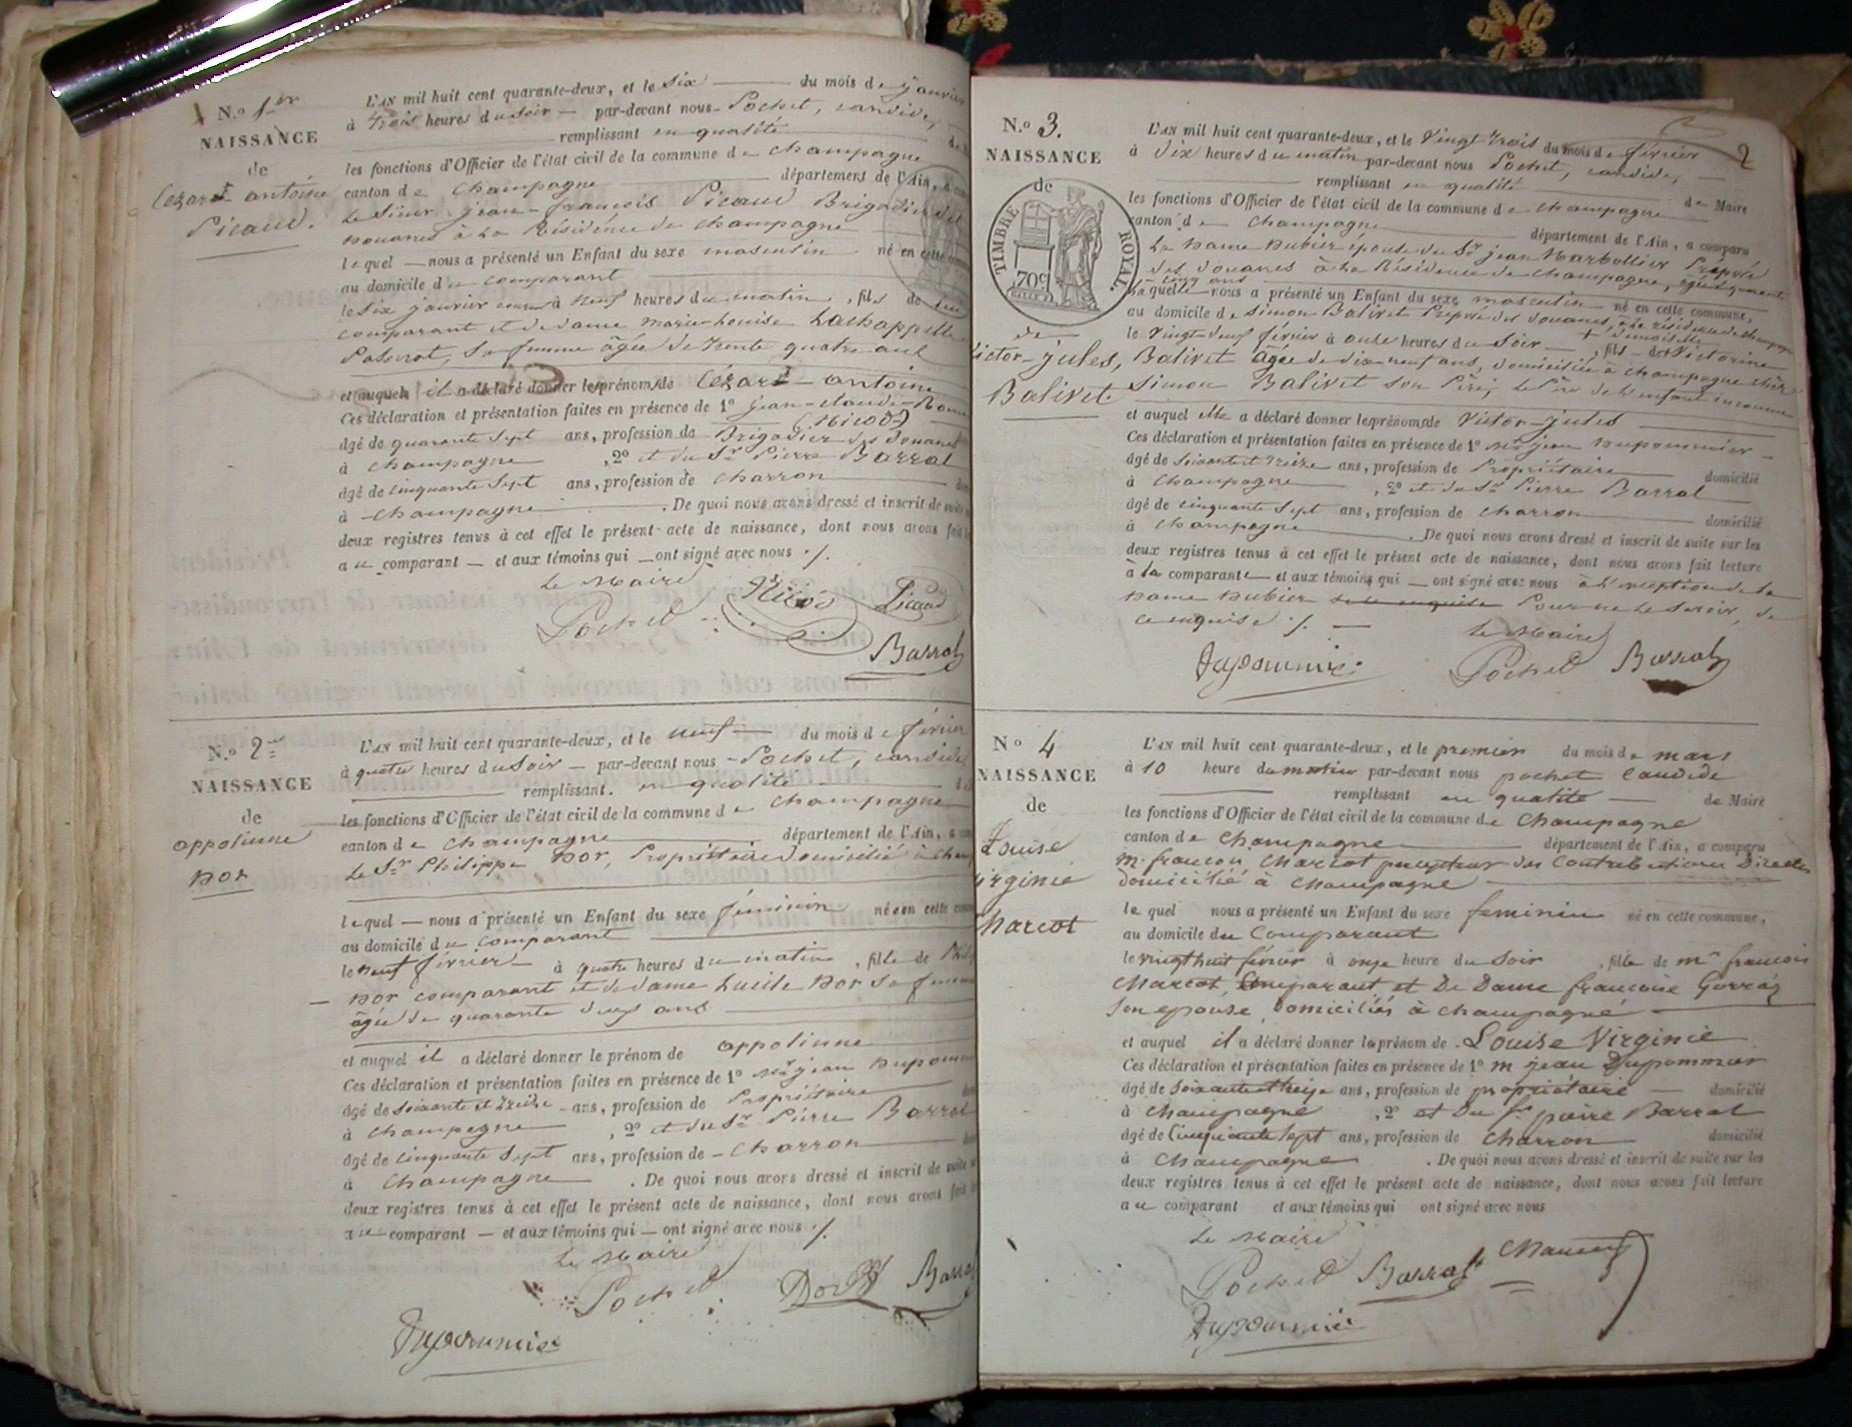 N.º 1er
NAISSANCE
de
Cézard antoine
Picaud.
L'AN mil huit cent quarante-deux, et le six du mois de janvier
à trois heures du soir — par-devant nous Pochet, candide,
remplissant en qualité de
les fonctions d'Officier de l'état civil de la commune de champagne
canton de Champagne département de l'Ain, a
Le Sieur jean-françois Picaud Brigadier des
Douanes à la Résidence de champagne
lequel — nous a présenté un Enfant du sexe masculin né en cette
au domicile du comparant
le six janvier à neuf heures du matin, fils de
comparant et de dame marie-Louise Lachappelle
sa femme âgée de trente quatre ans
et auquel il a déclaré donner les prénoms de Cézard-antoine
Ces déclaration et présentation faites en présence de 1º jean-claude
(Nicod)
âgé de quarante sept ans, profession de Brigadier des Douanes
à champagne, 2º et du Sr Pierre Barral
âgé de cinquante sept ans, profession de charron
à champagne. De quoi nous avons dressé et inscrit de suite
deux registres tenus à cet effet le présent acte de naissance, dont nous avons fait
au comparant — et aux témoins qui — ont signé avec nous ./.
Le Maire
Pochet Nicod Picaud
Barral
N.º 2me
NAISSANCE
de
appolinne
Dor
L'AN mil huit cent quarante-deux, et le neuf du mois de février
à quatre heures du soir — par-devant nous Pochet, candide
remplissant en qualité
les fonctions d'Officier de l'état civil de la commune de champagne
canton de champagne département de l'Ain, a
Le Sr Philippe Dor, Propriétaire domicilié à
lequel — nous a présenté un Enfant du sexe féminin né en cette
au domicile du comparant
le neuf février à quatre heures du matin, fille de
Dor comparant et de dame Lucile Dor sa femme
âgée de quarante deux ans
et auquel il a déclaré donner le prénom de appolinne
Ces déclaration et présentation faites en présence de 1º jean
âgé de soixante et treize ans, profession de Propriétaire
à champagne, 2º et du Sr Pierre Barral
âgé de cinquante sept ans, profession de charron
à champagne. De quoi nous avons dressé et inscrit de suite
deux registres tenus à cet effet le présent acte de naissance, dont nous avons fait
au comparant — et aux témoins qui — ont signé avec nous ./.
Le Maire
Pochet Dor Barral
Dupommier
2
N.º 3.
NAISSANCE
de
TIMBRE ROYAL
70c
de
Victor-jules,
Balivet.
L'AN mil huit cent quarante-deux, et le vingt trois du mois de février
à dix heures du matin par-devant nous Pochet, candide,
remplissant en qualité de Maire
les fonctions d'Officier de l'état civil de la commune de champagne
canton de champagne département de l'Ain, a comparu
La Dame Dubier épouse du Sr jean Préposé
des Douanes à la Résidence de champagne, âgée de
ans
laquelle nous a présenté un Enfant du sexe masculin né en cette commune,
au domicile de simon Balivet Préposé des douanes, à la résidence de champagne
le vingt-deux février à onze heures du soir, fils de + demoiselle Victorine
Balivet âgée de dix-neuf ans, domiciliée à champagne chez
Simon Balivet son Père, le Père de l'enfant inconnu
et auquel elle a déclaré donner les prénoms de Victor-jules
Ces déclaration et présentation faites en présence de 1º jean Dupommier
âgé de soixante et treize ans, profession de Propriétaire domicilié
à champagne, 2º et du Sr Pierre Barral
âgé de cinquante sept ans, profession de charron domicilié
à champagne. De quoi nous avons dressé et inscrit de suite sur les
deux registres tenus à cet effet le présent acte de naissance, dont nous avons fait lecture
à la comparante — et aux témoins qui — ont signé avec nous à l'exception de la
Dame Dubier Pour ne le savoir, de
ce requise ./.
Le Maire
Dupommier Pochet Barral
Nº 4
NAISSANCE
de
Louise
Virginie
Charcot
L'AN mil huit cent quarante-deux, et le premier du mois de mars
à 10 heure du matin par-devant nous pochet Candide
remplissant en qualité de Maire
les fonctions d'Officier de l'état civil de la commune de Champagne
canton de Champagne département de l'Ain, a comparu
M. françois Charcot percepteur des Contributions Directes
domicilié à Champagne
lequel nous a présenté un Enfant du sexe feminin né en cette commune,
au domicile du Comparant
le vingt huit février à onze heure du soir, fille de Mr francois
Charcot, Comparant et De Dame francoise
son epouse, domiciliés à champagne
et auquel il a déclaré donner le prénom de Louise Virginie
Ces déclaration et présentation faites en présence de 1º M jean Dupommier
âgé de soixante et treize ans, profession de propriétaire domicilié
à Champagne, 2º et Du Sr pierre Barral
âgé de Cinquante sept ans, profession de Charron domicilié
à Champagne. De quoi nous avons dressé et inscrit de suite sur les
deux registres tenus à cet effet le présent acte de naissance, dont nous avons fait lecture
au comparant et aux témoins qui ont signé avec nous
Le Maire
Pochet Barral Charcot
Dupommier